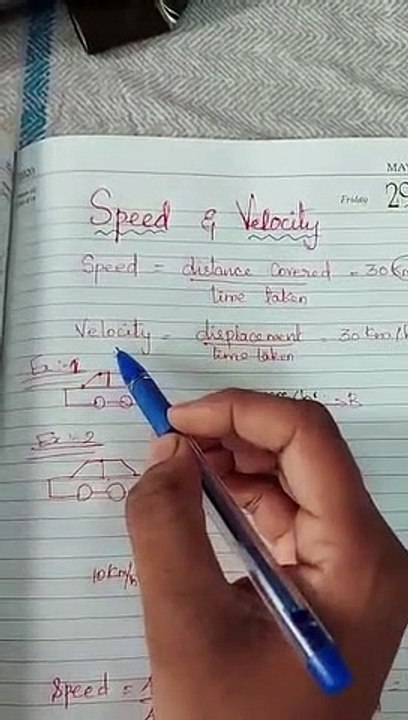 MA
Friday 29
Speed & Velocity
Speed = distance covered = 30
time taken
Velocity = displacement = 30 Km/h
time taken
Ex:-1
B
Ex:-2
10 Km/h
Speed =